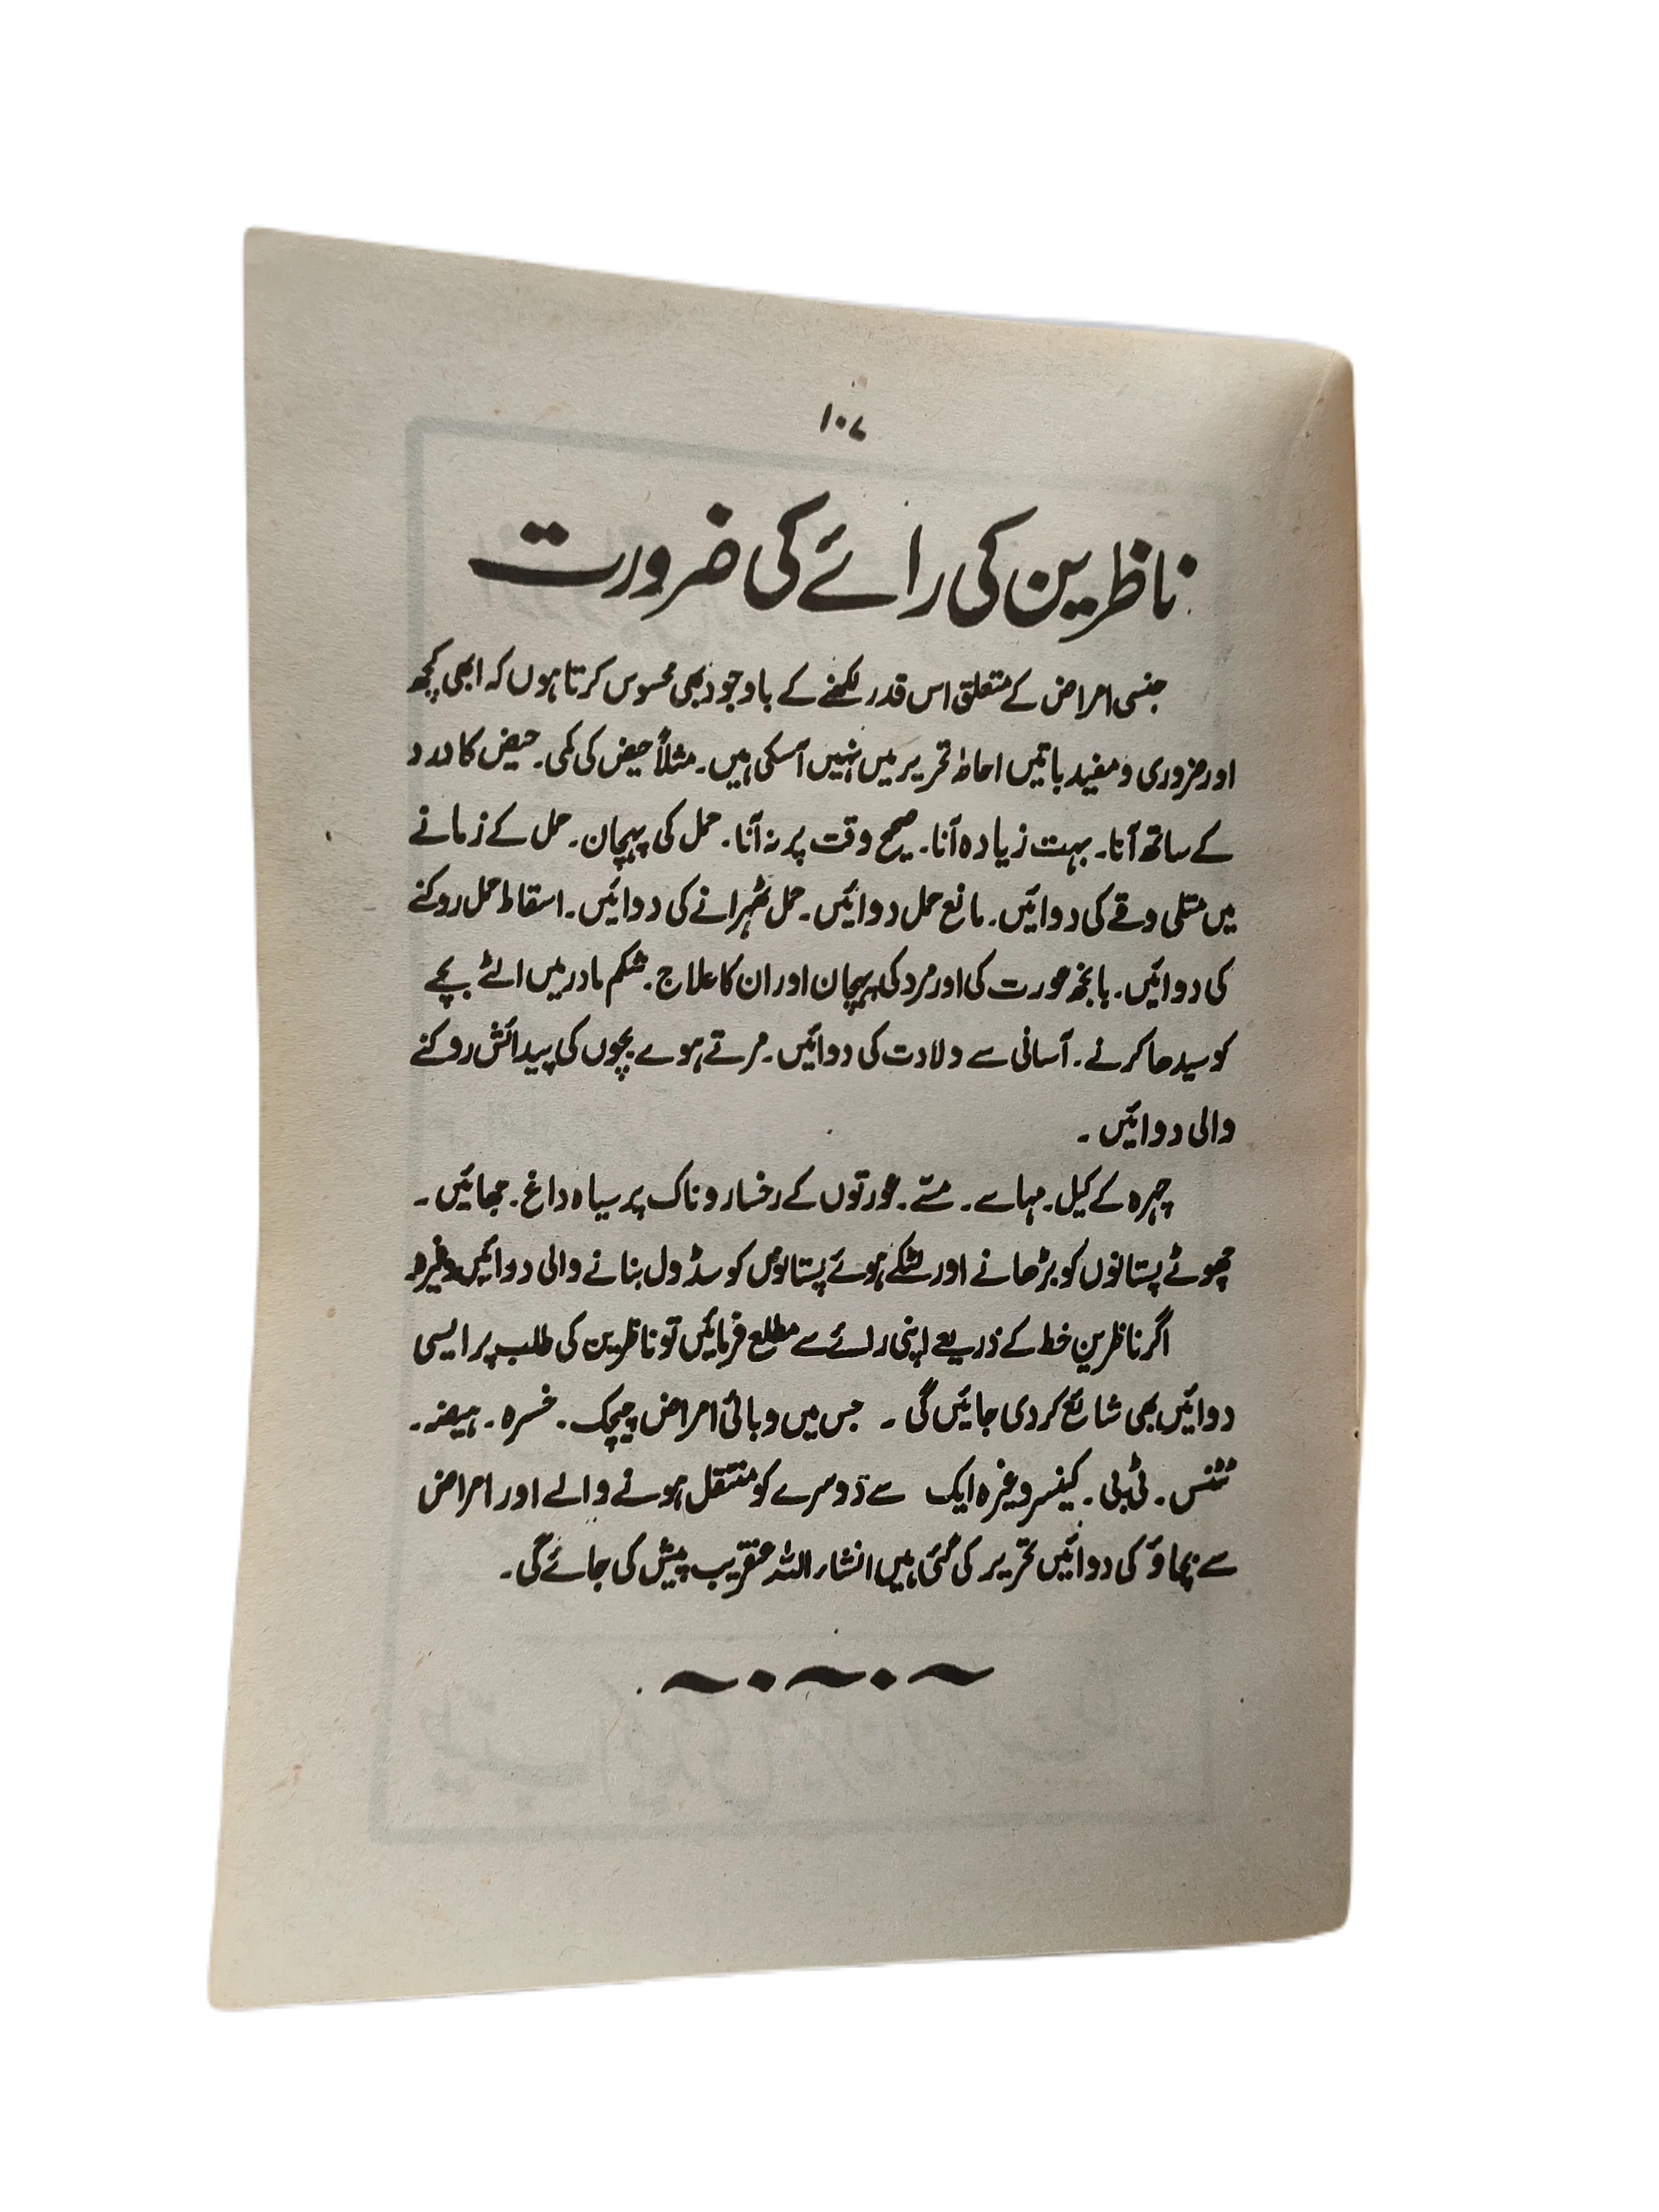 ۱۰۷
ناظرین کی رائے کی ضرورت
جنسی امراض کے متعلق اس قدر لکھنے کے باوجود بھی محسوس کرتا ہوں کہ ابھی کچھ
اور ضروری و مفید باتیں احاطہ تحریر میں نہیں آسکی ہیں۔ مثلاً حیض کی کمی۔ حیض کا درد
کے ساتھ آنا۔ بہت زیادہ آنا۔ صحیح وقت پر نہ آنا۔ حمل کی پہچان۔ حمل کے زمانے
میں متلی و قے کی دوائیں۔ مانع حمل دوائیں۔ حمل ٹھرانے کی دوائیں۔ اسقاط حمل روکنے
کی دوائیں۔ بانجھ عورت کی اور مرد کی پہچان اور ان کا علاج۔ شکم مادر میں الٹے بچے
کو سیدھا کرنے۔ آسانی سے ولادت کی دوائیں۔ مرتے ہوے بچوں کی پیدائش روکنے
والی دوائیں۔
چہرہ کے کیل۔ مہاسے۔ مسّے۔ عورتوں کے رخسار و ناک پر سیاہ داغ۔ جھائیں۔
چھوٹے پستانوں کو بڑھانے اور لٹکے ہوئے پستانوں کو سڈول بنانے والی دوائیں وغیرہ
اگر ناظرین خط کے ذریعے اپنی رائے سے مطلع فرمائیں تو ناظرین کی طلب پر ایسی
دوائیں بھی شائع کردی جائیں گی۔ جس میں وبائی امراض چیچک۔ خسرہ۔ ہیضہ۔
ٹٹنس۔ ٹی بی۔ کینسر وغیرہ ایک سے دوسرے کو منتقل ہونے والے اور امراض
سے بچاؤ کی دوائیں تحریر کی گئی ہیں انشاء اللہ عنقریب پیش کی جائے گی۔